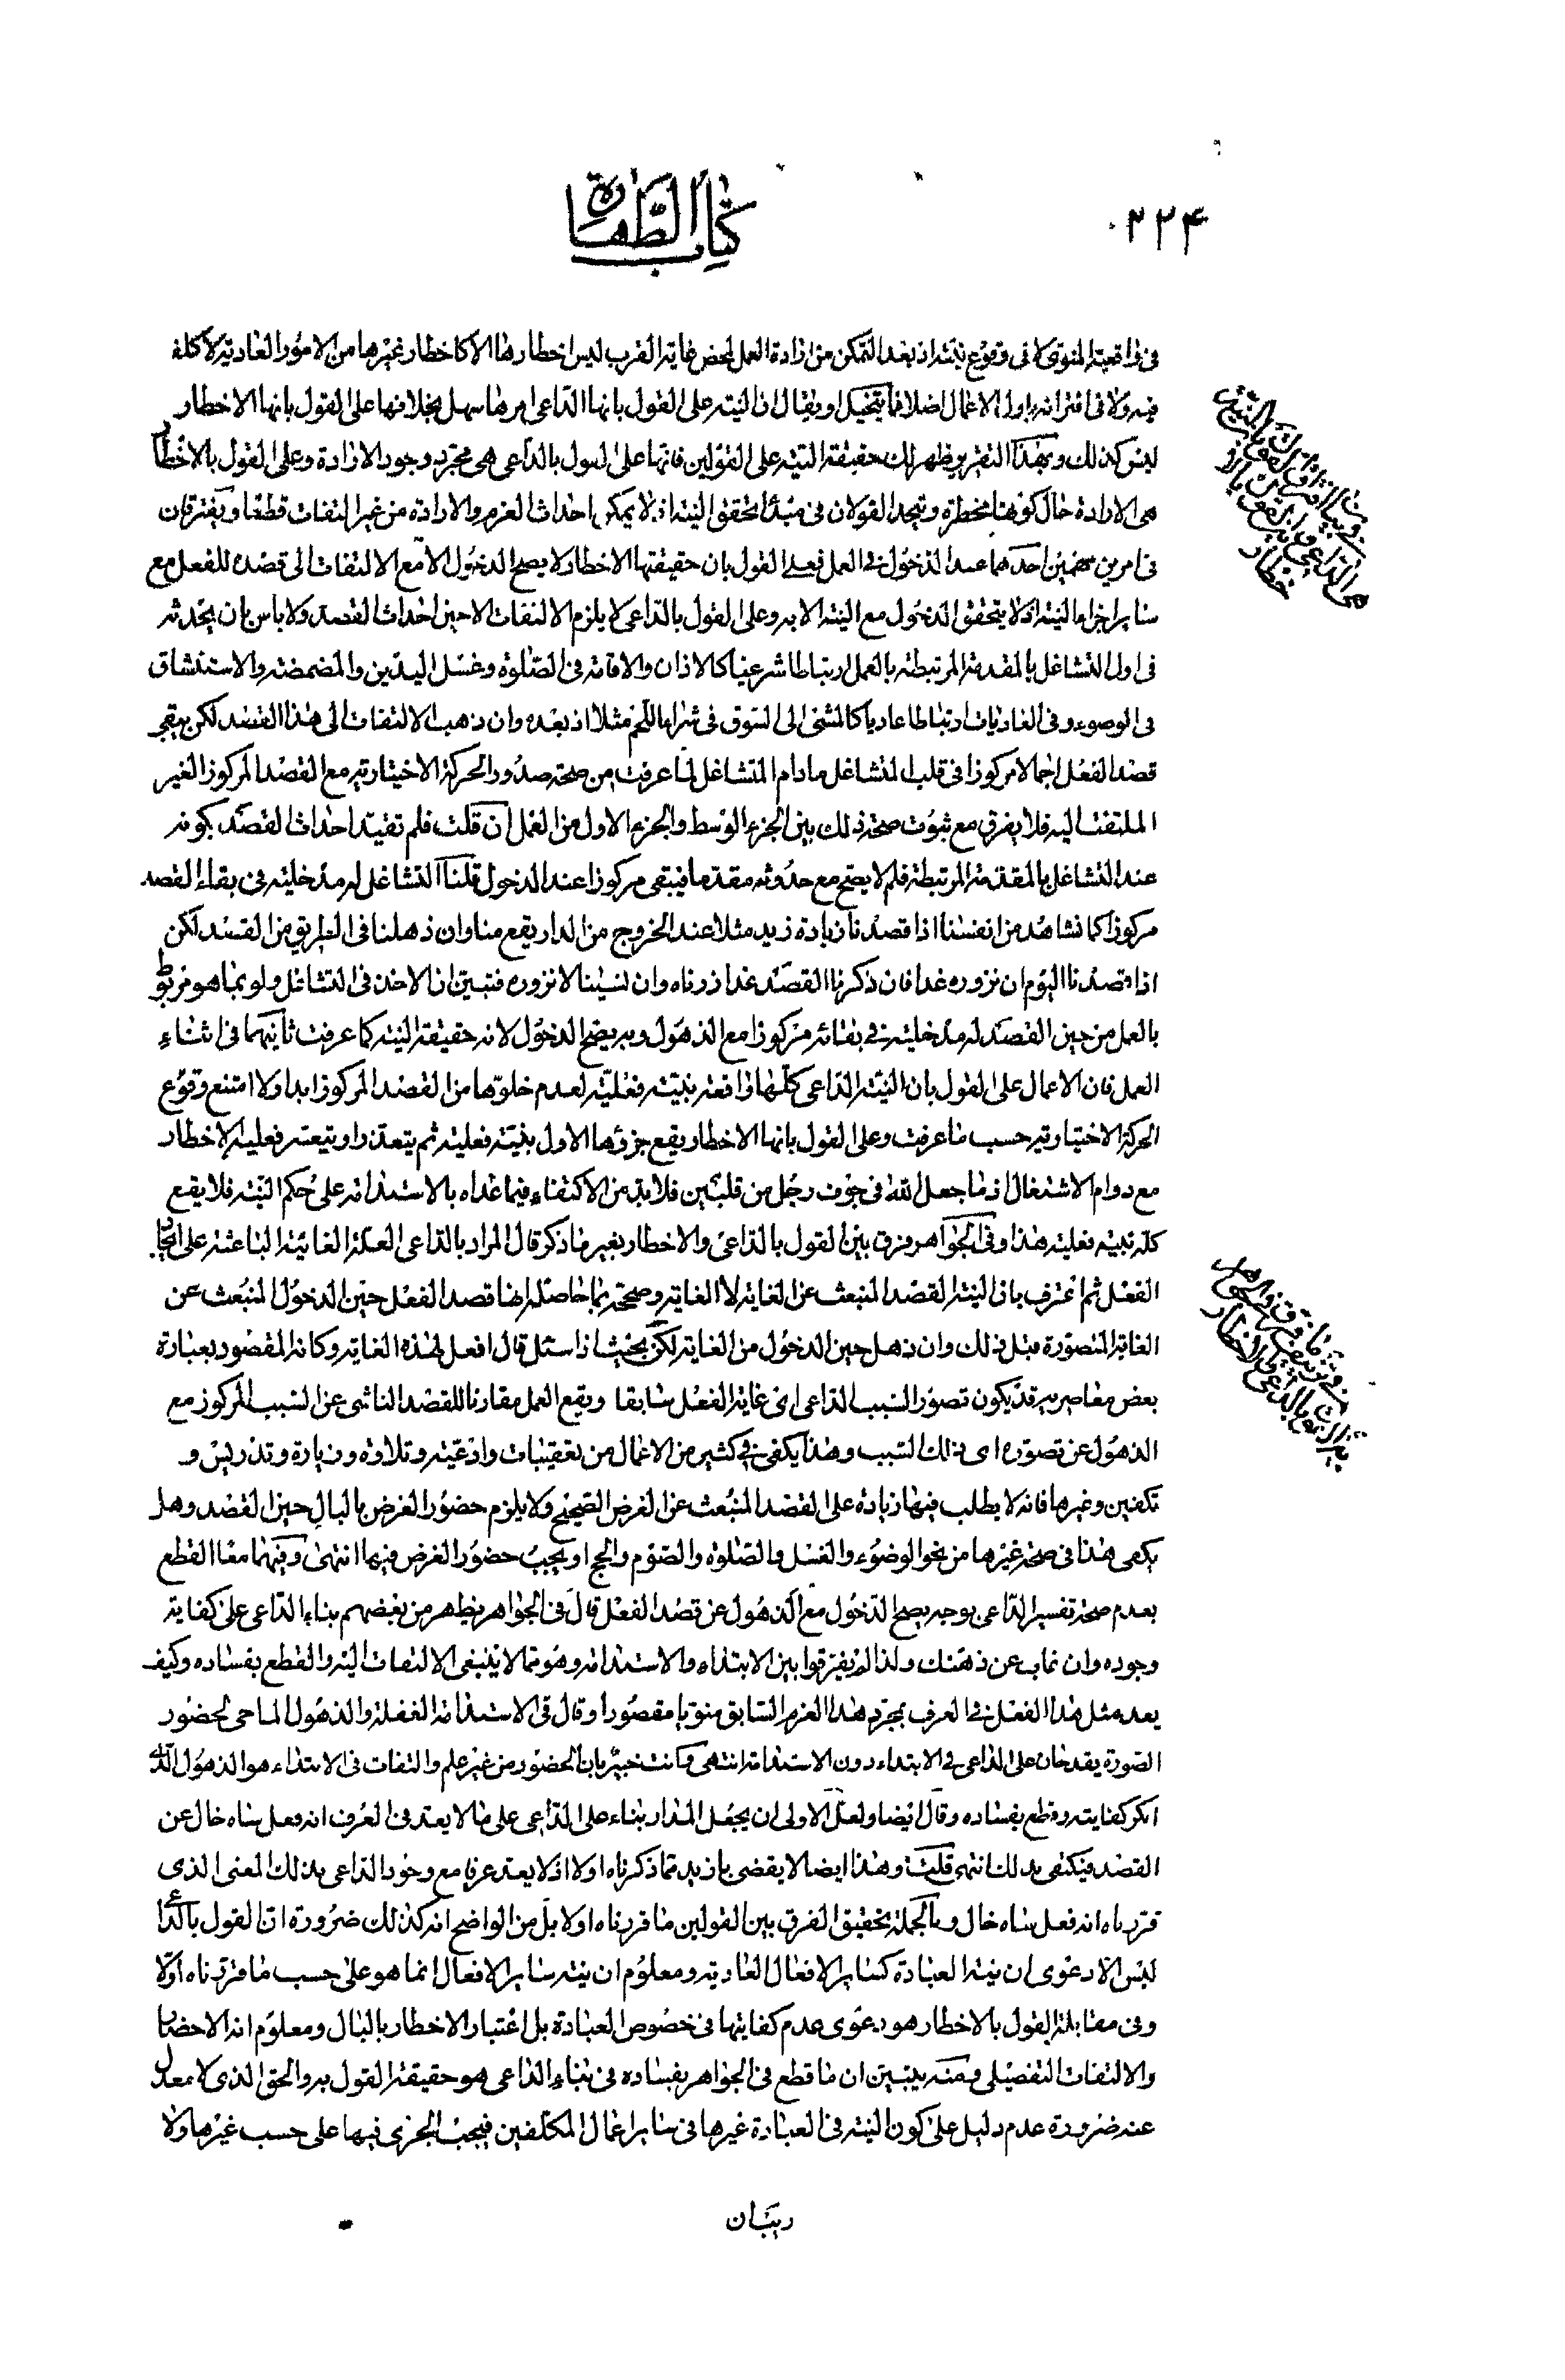 ٢٢٤
كتاب الطهارة
في واقعية المنوي لا في وقوع نيته اذ بعد التمكن من ارادة العمل لمحض غاية القرب ليس اخطارها الا كاخطار غيرها من الامور العادية لا كلفة
فيه ولا في اقترانه باول الاعمال اصلا فما يتخيل او يقال ان النية على القول بانها الداعي امرها سهل بخلافها على القول بانها الاخطار
ليس كذلك وبهذا التقرير يظهر لك حقيقة النية على القولين فانها على القول بالداعي هي مجرد وجود الارادة وعلى القول بالاخطار
هي الارادة حال كونها مخطرة ويتحد القولان في مبدأ تحقق النية اذ لا يمكن احداث العزم والارادة من غير التفات قطعا ويفترقان
في امرين مهمين احدهما عند الدخول في العمل فعلى القول بان حقيقتها الاخطار لا يصح الدخول الا مع الالتفات الى قصده للفعل مع
ساير اجزاء النية اذ لا يتحقق الدخول مع النية الا به وعلى القول بالداعي لا يلزم الالتفات الا حين احداث القصد ولا باس بان يحدثه
في اول التشاغل بالمقدمة المرتبطة بالعمل ارتباطا شرعيا كالاذان والاقامة في الصلوة وغسل اليدين والمضمضة والاستنشاق
في الوضوء وفي العاديات ارتباطا عاديا كالمشي الى السوق في شراء اللحم مثلا اذ بعده وان ذهب الالتفات الى هذا القصد لكن يبقى
قصد الفعل اجمالا مركوزا في قلب المتشاغل مادام المتشاغل لما عرفت من صحة صدور الحركة الاختيارية مع القصد المركوز الغير
الملتفت اليه فلا يفرق مع ثبوت صحة ذلك بين الجزء الوسط والجزء الاول من العمل ان قلت فلم تقيد احداث القصد بكونه
عند التشاغل بالمقدمة المرتبطة فلم لا يصح مع حدوثه مقدما فيبقى مركوزا عند الدخول قلنا التشاغل له مدخلية في بقاء القصد
مركوزا كما نشاهد من انفسنا اذا قصدنا زيادة زيد مثلا عند الخروج من الدار يقع منا وان ذهلنا في الطريق من القصد لكن
اذا قصدنا اليوم ان نزوره غدا فان ذكرنا القصد غدا زرناه وان نسينا لا نزوره فتبين ان الاخذ في التشاغل ولو بما هو مربوط
بالعمل من حين القصد له مدخلية في بقائه مركوزا مع الذهول وبه يصح الدخول لانه حقيقة النية كما عرفت ثانيهما في اثناء
العمل فان الاعمال على القول بان النية الداعي كلها واقعة بنية فعلية لعدم خلوها من القصد المركوز ابدا ولا امتنع وقوع
الحركة الاختيارية حسب ما عرفت وعلى القول بانها الاخطار يقع جزؤها الاول بنية فعلية ثم يتعذر او يتعسر فعلية الاخطار
مع دوام الاشتغال اذ ما جعل الله في جوف رجل من قلبين فلا بد من الاكتفاء فيما عداه بالاستدامة على حكم النية فلا يقع
كله بنية فعلية هذا وفي الجواهر فرق بين القول بالداعي والاخطار بغير ما ذكر قال المراد بالداعي العلة الغائية الباعثة على ايجاد
الفعل ثم اعترف بان النية القصد المنبعث عن الغاية لا الغاية وصححه بما حاصله انها قصد الفعل حين الدخول المنبعث عن
الغاية المتصورة قبل ذلك وان ذهل حين الدخول من الغاية لكن بحيث اذا سئل قال افعل لهذه الغاية وكانه المقصود بعبارة
بعض معاصريه قد يكون تصور السبب الداعي اي غاية الفعل سابقا ويقع العمل مقارنا للقصد الناشي عن السبب المركوز مع
الذهول عن تصوره اى ذلك السبب وهذا يكفي في كثير من الاعمال من تعقيبات وادعية وتلاوة وزيارة وتدريس و
تكفين وغيرها فانه لا يطلب فيها زيادة على القصد المنبعث عن الغرض الصحيح ولا يلزم حضور الغرض بالبال حين القصد وهل
يكفي هذا في صحة غيرها من نحو الوضوء والغسل والصلوة والصوم والحج او يجب حضور الغرض فيها انتهى وفيهما معا القطع
بعدم صحة تفسير الداعي بوجه يصح الدخول مع الذهول عن قصد الفعل قال في الجواهر يظهر من بعضهم بناء الداعي على كفاية
وجوده وان غاب عن ذهنك ولذا لم يفرقوا بين الابتداء والاستدامة وهو مما لا ينبغي الالتفات اليه والقطع بفساده وكيف
يعد مثل هذا الفعل في العرف بمجرد هذا العزم السابق منويا مقصورا وقال في الاستدامة الغفلة والذهول الماحي لحضور
الصورة يقدحان على الداعي في الابتداء دون الاستدامة انتهى وانت خبير بان الحضور من غير علم والتفات في الابتداء هو الذهول الذي
انكر كفايته وقطع بفساده وقال ايضا ولعل الاولى ان يجعل المدار بناء على الداعي على ما لا يعد في العرف انه فعل ساه خال عن
القصد فيكتفى بذلك انتهى قلت وهذا ايضا لا يقضي بازيد مما ذكرناه اولا اذ لا يعد عرفا مع وجود الداعي بذلك المعنى الذي
قررناه انه فعل ساه خال وبالجملة تحقيق الفرق بين القولين ما قررناه اولا بل من الواضح انه كذلك ضرورة ان القول بالداعي
ليس الا دعوى ان نية العبادة كساير الافعال العادية ومعلوم ان نية ساير الافعال انما هو على حسب ما قررناه اولا
وفي مقابلة القول بالاخطار هو دعوى عدم كفايتها في خصوص العبادة بل اعتبار الاخطار بالبال ومعلوم انه الاحضار
والالتفات التفصيلي ومنه يتبين ان ما قطع في الجواهر بفساده في بناء الداعي هو حقيقة القول به والحق الذي لا معدل
عنه ضرورة عدم دليل على كون النية في العبادة غيرها في ساير اعمال المكلفين فيجب الجري فيها على حسب غيرها ولا
ريبان